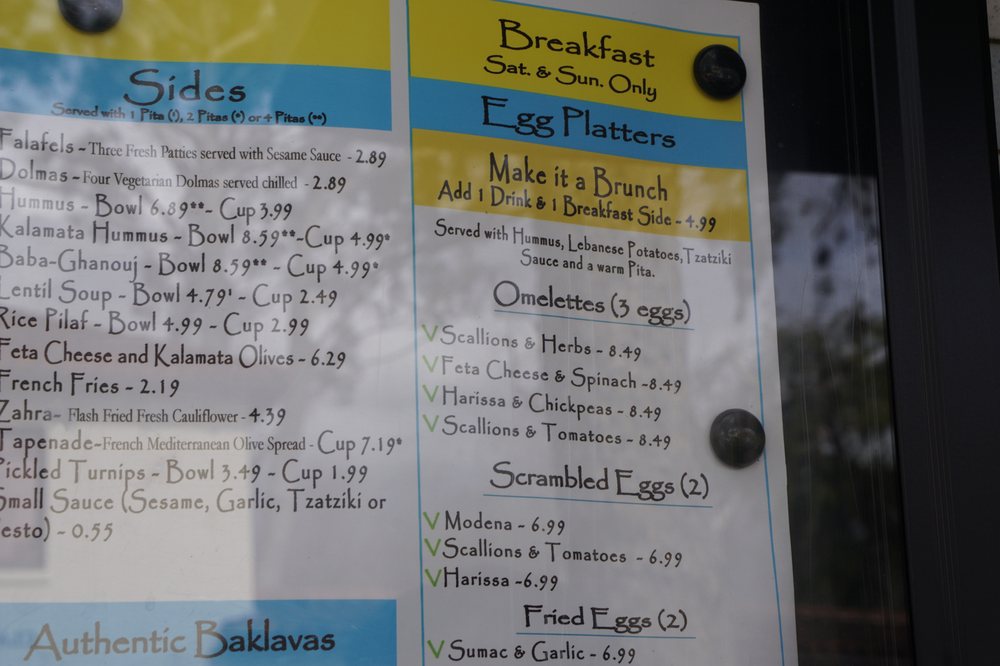 Sides
Served with 1 Pita ('), 2 Pitas (*) or 4 Pitas (**)
Falafels - Three Fresh Patties served with Sesame Sauce - 2.89
Dolmas - Four Vegetarian Dolmas served chilled - 2.89
Hummus - Bowl 6.89**- Cup 3.99
Kalamata Hummus - Bowl 8.59**-Cup 4.99*
Baba-Ghanouj - Bowl 8.59** - Cup 4.99*
Lentil Soup - Bowl 4.79' - Cup 2.49
Rice Pilaf - Bowl 4.99 - Cup 2.99
Feta Cheese and Kalamata Olives - 6.29
French Fries - 2.19
Zahra- Flash Fried Fresh Cauliflower - 4.39
Tapenade-French Mediterranean Olive Spread - Cup 7.19*
Pickled Turnips - Bowl 3.49 - Cup 1.99
Small Sauce (Sesame, Garlic, Tzatziki or
esto) - 0.55
Authentic Baklavas
Breakfast
Sat. & Sun. Only
Egg Platters
Make it a Brunch
Add 1 Drink & 1 Breakfast Side - 4.99
Served with Hummus, Lebanese Potatoes, Tzatziki
Sauce and a warm Pita.
Omelettes (3 eggs)
V Scallions & Herbs - 8.49
V Feta Cheese & Spinach -8.49
V Harissa & Chickpeas - 8.49
V Scallions & Tomatoes - 8.49
Scrambled Eggs (2)
V Modena - 6.99
V Scallions & Tomatoes - 6.99
V Harissa -6.99
Fried Eggs (2)
V Sumac & Garlic - 6.99